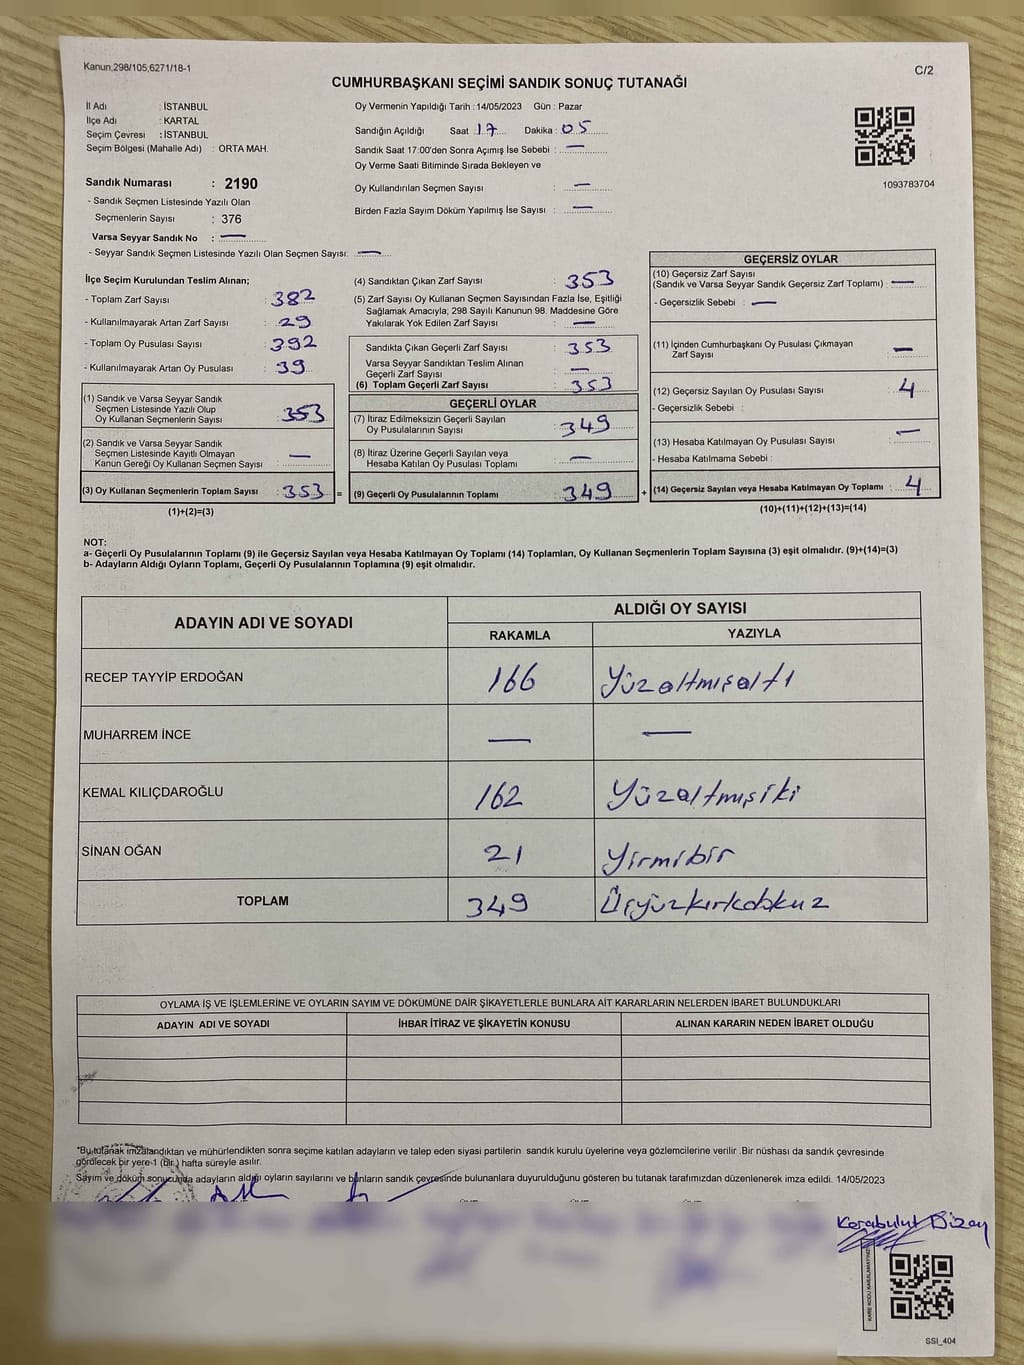 Kanun,298/105,6271/18-1
C/2
CUMHURBAŞKANI SEÇİMİ SANDIK SONUÇ TUTANAĞI
İl Adı : İSTANBUL
İlçe Adı : KARTAL
Seçim Çevresi : İSTANBUL
Seçim Bölgesi (Mahalle Adı) : ORTA MAH.
Sandık Numarası : 2190
- Sandık Seçmen Listesinde Yazılı Olan
Seçmenlerin Sayısı : 376
Varsa Seyyar Sandık No : —
- Seyyar Sandık Seçmen Listesinde Yazılı Olan Seçmen Sayısı: —
Oy Vermenin Yapıldığı Tarih : 14/05/2023 Gün : Pazar
Sandığın Açıldığı Saat : 17 Dakika : 05
Sandık Saat 17:00'den Sonra Açımış İse Sebebi : —
Oy Verme Saati Bitiminde Sırada Bekleyen ve
Oy Kullandırılan Seçmen Sayısı : —
Birden Fazla Sayım Döküm Yapılmış İse Sayısı : —
1093783704
İlçe Seçim Kurulundan Teslim Alınan;
- Toplam Zarf Sayısı : 382
- Kullanılmayarak Artan Zarf Sayısı : 29
- Toplam Oy Pusulası Sayısı : 392
- Kullanılmayarak Artan Oy Pusulası : 39
(1) Sandık ve Varsa Seyyar Sandık
Seçmen Listesinde Yazılı Olup
Oy Kullanan Seçmenlerin Sayısı : 353
(2) Sandık ve Varsa Seyyar Sandık
Seçmen Listesinde Kayıtlı Olmayan
Kanun Gereği Oy Kullanan Seçmen Sayısı : —
(3) Oy Kullanan Seçmenlerin Toplam Sayısı : 353 =
(1)+(2)=(3)
(4) Sandıktan Çıkan Zarf Sayısı : 353
(5) Zarf Sayısı Oy Kullanan Seçmen Sayısından Fazla İse, Eşitliği
Sağlamak Amacıyla; 298 Sayılı Kanunun 98. Maddesine Göre
Yakılarak Yok Edilen Zarf Sayısı : —
Sandıkta Çıkan Geçerli Zarf Sayısı : 353
Varsa Seyyar Sandıktan Teslim Alınan
Geçerli Zarf Sayısı : —
(6) Toplam Geçerli Zarf Sayısı : 353
GEÇERLİ OYLAR
(7) İtiraz Edilmeksizin Geçerli Sayılan
Oy Pusulalarının Sayısı : 349
(8) İtiraz Üzerine Geçerli Sayılan veya
Hesaba Katılan Oy Pusulası Toplamı : —
(9) Geçerli Oy Pusulalarının Toplamı : 349 +
GEÇERSİZ OYLAR
(10) Geçersiz Zarf Sayısı
(Sandık ve Varsa Seyyar Sandık Geçersiz Zarf Toplamı) : —
- Geçersizlik Sebebi : —
(11) İçinden Cumhurbaşkanı Oy Pusulası Çıkmayan
Zarf Sayısı : —
(12) Geçersiz Sayılan Oy Pusulası Sayısı : 4
- Geçersizlik Sebebi :
(13) Hesaba Katılmayan Oy Pusulası Sayısı : —
- Hesaba Katılmama Sebebi :
(14) Geçersiz Sayılan veya Hesaba Katılmayan Oy Toplamı : 4
(10)+(11)+(12)+(13)=(14)
NOT:
a- Geçerli Oy Pusulalarının Toplamı (9) ile Geçersiz Sayılan veya Hesaba Katılmayan Oy Toplamı (14) Toplamları, Oy Kullanan Seçmenlerin Toplam Sayısına (3) eşit olmalıdır. (9)+(14)=(3)
b- Adayların Aldığı Oyların Toplamı, Geçerli Oy Pusulalarının Toplamına (9) eşit olmalıdır.
ADAYIN ADI VE SOYADI
ALDIĞI OY SAYISI
RAKAMLA YAZIYLA
RECEP TAYYİP ERDOĞAN 166 Yüzaltmışaltı
MUHARREM İNCE — —
KEMAL KILIÇDAROĞLU 162 Yüzaltmışiki
SİNAN OĞAN 21 Yirmibir
TOPLAM 349 Üçyüzkırkdokuz
OYLAMA İŞ VE İŞLEMLERİNE VE OYLARIN SAYIM VE DÖKÜMÜNE DAİR ŞİKAYETLERLE BUNLARA AİT KARARLARIN NELERDEN İBARET BULUNDUKLARI
ADAYIN ADI VE SOYADI İHBAR İTİRAZ VE ŞİKAYETİN KONUSU ALINAN KARARIN NEDEN İBARET OLDUĞU
*Bu tutanak imzalandıktan ve mühürlendikten sonra seçime katılan adayların ve talep eden siyasi partilerin sandık kurulu üyelerine veya gözlemcilerine verilir. Bir nüshası da sandık çevresinde
görülecek bir yere 1 (bir) hafta süreyle asılır.
Sayım ve döküm sonucunda adayların aldığı oyların sayılarını ve bunların sandık çevresinde bulunanlara duyurulduğunu gösteren bu tutanak tarafımızdan düzenlenerek imza edildi. 14/05/2023
Karabulut
SSI_404